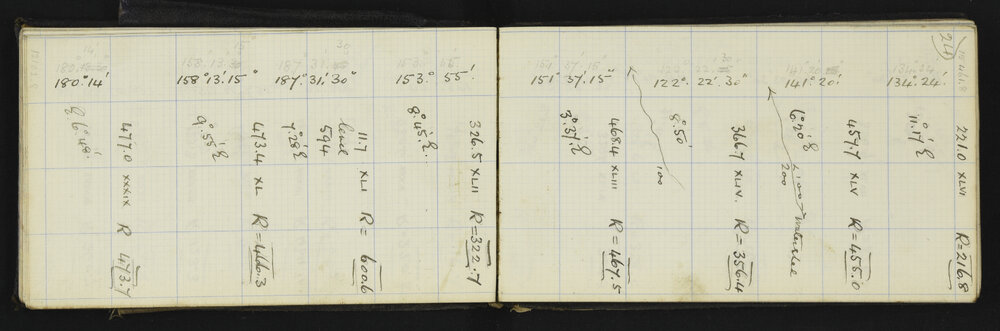 180° 14'
8° 6' 48'
477.0 XXXIX R 473.7
158° 13' 15"
9° 55'
473.4 XL R = 466.3
187° 31' 30"
7° 28'
594
level
11.7 XLI R = 600.6
153° 55'
8° 45'
326.5 XLII R = 322.7
151° 37' 15"
3° 37'
468.4 XLIII R = 467.5
122° 22' 30"
8° 50'
100
366.7 XLIV. R = 356.4
141° 20'
6° 20'
200
100 watershed
457.7 XLV R = 455.0
134° 24'
11° 17'
221.0 XLVI R = 216.8
214